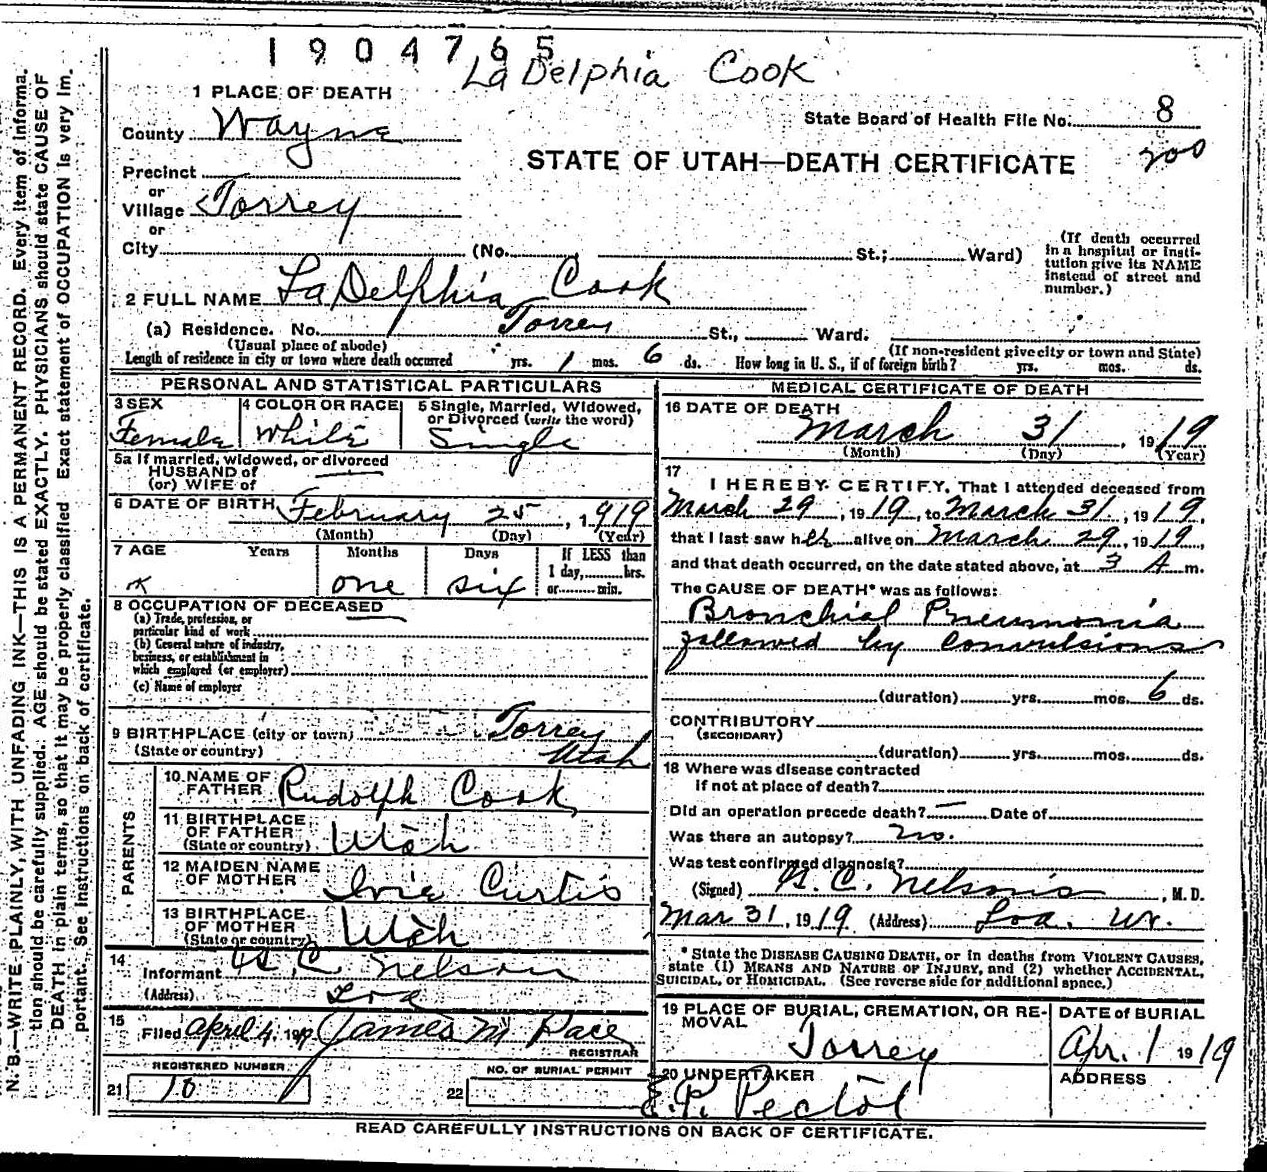 1904765
LaDelphia Cook
1 PLACE OF DEATH
State Board of Health File No. 8
County Wayne
STATE OF UTAH—DEATH CERTIFICATE
200
Precinct
or
Village Torrey
or
City (No. St.; Ward)
(If death occurred in a hospital or insti-
tution give its NAME
instead of street and
number.)
2 FULL NAME LaDelphia Cook
(a) Residence. No. Torrey St., Ward.
(Usual place of abode) (If non-resident give city or town and State)
Length of residence in city or town where death occurred yrs. 1 mos. 6 ds. How long in U. S., if of foreign birth? yrs. mos. ds.
PERSONAL AND STATISTICAL PARTICULARS
3 SEX 4 COLOR OR RACE 5 Single, Married, Widowed,
or Divorced (write the word)
Female White Single
5a If married, widowed, or divorced
HUSBAND of
(or) WIFE of
6 DATE OF BIRTH February 25, 1919
(Month) (Day) (Year)
7 AGE Years Months Days If LESS than
1 day, hrs.
or min.
one six
8 OCCUPATION OF DECEASED
(a) Trade, profession, or
particular kind of work
(b) General nature of industry,
business, or establishment in
which employed (or employer)
(c) Name of employer
9 BIRTHPLACE (city or town) Torrey
(State or country) Utah
PARENTS
10 NAME OF
FATHER Rudolph Cook
11 BIRTHPLACE
OF FATHER
(State or country) Utah
12 MAIDEN NAME
OF MOTHER Ivie Curtis
13 BIRTHPLACE
OF MOTHER
(State or country) Utah
14
Informant H C Nelson
(Address) Loa
15
Filed April 4, 1919 James M Pace
REGISTRAR
REGISTERED NUMBER
21 10
NO. OF BURIAL PERMIT
22
MEDICAL CERTIFICATE OF DEATH
16 DATE OF DEATH
March 31, 1919
(Month) (Day) (Year)
17
I HEREBY CERTIFY, That I attended deceased from
March 29, 1919, to March 31, 1919,
that I last saw her alive on March 29, 1919,
and that death occurred, on the date stated above, at 3 A m.
The CAUSE OF DEATH* was as follows:
Bronchial Pneumonia
followed by Convulsions
(duration) yrs. mos. 6 ds.
CONTRIBUTORY
(SECONDARY)
(duration) yrs. mos. ds.
18 Where was disease contracted
if not at place of death?
Did an operation precede death? — Date of
Was there an autopsy? no.
Was test confirmed diagnosis?
(Signed) C. , M. D.
Mar 31, 1919 (Address) Loa. Ut.
* State the DISEASE CAUSING DEATH, or in deaths from VIOLENT CAUSES,
state (1) MEANS AND NATURE OF INJURY, and (2) whether ACCIDENTAL,
SUICIDAL, or HOMICIDAL. (See reverse side for additional space.)
19 PLACE OF BURIAL, CREMATION, OR RE-
MOVAL
Torrey
DATE of BURIAL
Apr. 1 1919
20 UNDERTAKER
E. P. Pectol
ADDRESS
READ CAREFULLY INSTRUCTIONS ON BACK OF CERTIFICATE.
N. B.—WRITE PLAINLY, WITH UNFADING INK—THIS IS A PERMANENT RECORD. Every item of informa-
tion should be carefully supplied. AGE should be stated EXACTLY. PHYSICIANS should state CAUSE OF
DEATH in plain terms, so that it may be properly classified. Exact statement of OCCUPATION is very im-
portant. See instructions on back of certificate.